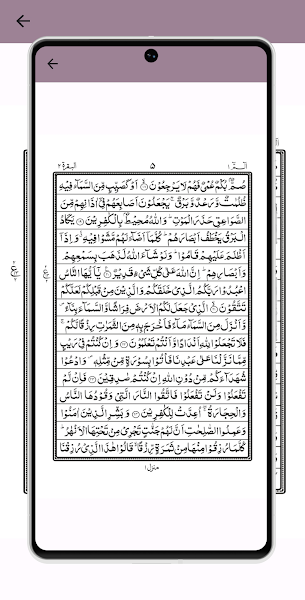 البقرة ٢ ٥ الٓمّٓ ١
صُمٌّۢ بُكْمٌ عُمْیٌ فَهُمْ لَا یَرْجِعُوْنَ ۙ اَوْ كَصَیِّبٍ مِّنَ السَّمَآءِ فِیْهِ
ظُلُمٰتٌ وَّرَعْدٌ وَّبَرْقٌ ۚ یَجْعَلُوْنَ اَصَابِعَهُمْ فِیْۤ اٰذَانِهِمْ مِّنَ
الصَّوَاعِقِ حَذَرَ الْمَوْتِ ؕ وَاللّٰهُ مُحِیْطٌۢ بِالْكٰفِرِیْنَ یَكَادُ
الْبَرْقُ یَخْطَفُ اَبْصَارَهُمْ ؕ كُلَّمَاۤ اَضَآءَ لَهُمْ مَّشَوْا فِیْهِ ۙ وَاِذَاۤ
اَظْلَمَ عَلَیْهِمْ قَامُوْا ؕ وَلَوْ شَآءَ اللّٰهُ لَذَهَبَ بِسَمْعِهِمْ
وَاَبْصَارِهِمْ ؕ اِنَّ اللّٰهَ عَلٰی كُلِّ شَیْءٍ قَدِیْرٌ یٰۤاَیُّهَا النَّاسُ
اعْبُدُوْا رَبَّكُمُ الَّذِیْ خَلَقَكُمْ وَالَّذِیْنَ مِنْ قَبْلِكُمْ لَعَلَّكُمْ
تَتَّقُوْنَ ۙ الَّذِیْ جَعَلَ لَكُمُ الْاَرْضَ فِرَاشًا وَّالسَّمَآءَ بِنَآءً ۪
وَّاَنْزَلَ مِنَ السَّمَآءِ مَآءً فَاَخْرَجَ بِهٖ مِنَ الثَّمَرٰتِ رِزْقًا لَّكُمْ ۚ
فَلَا تَجْعَلُوْا لِلّٰهِ اَنْدَادًا وَّاَنْتُمْ تَعْلَمُوْنَ وَاِنْ كُنْتُمْ فِیْ رَیْبٍ
مِّمَّا نَزَّلْنَا عَلٰی عَبْدِنَا فَاْتُوْا بِسُوْرَةٍ مِّنْ مِّثْلِهٖ ۪ وَادْعُوْا
شُهَدَآءَكُمْ مِّنْ دُوْنِ اللّٰهِ اِنْ كُنْتُمْ صٰدِقِیْنَ فَاِنْ لَّمْ
تَفْعَلُوْا وَلَنْ تَفْعَلُوْا فَاتَّقُوا النَّارَ الَّتِیْ وَقُوْدُهَا النَّاسُ
وَالْحِجَارَةُ ۖ اُعِدَّتْ لِلْكٰفِرِیْنَ وَبَشِّرِ الَّذِیْنَ اٰمَنُوْا
وَعَمِلُوا الصّٰلِحٰتِ اَنَّ لَهُمْ جَنّٰتٍ تَجْرِیْ مِنْ تَحْتِهَا الْاَنْهٰرُ ؕ
كُلَّمَا رُزِقُوْا مِنْهَا مِنْ ثَمَرَةٍ رِّزْقًا ۙ قَالُوْا هٰذَا الَّذِیْ رُزِقْنَا
منزل ١